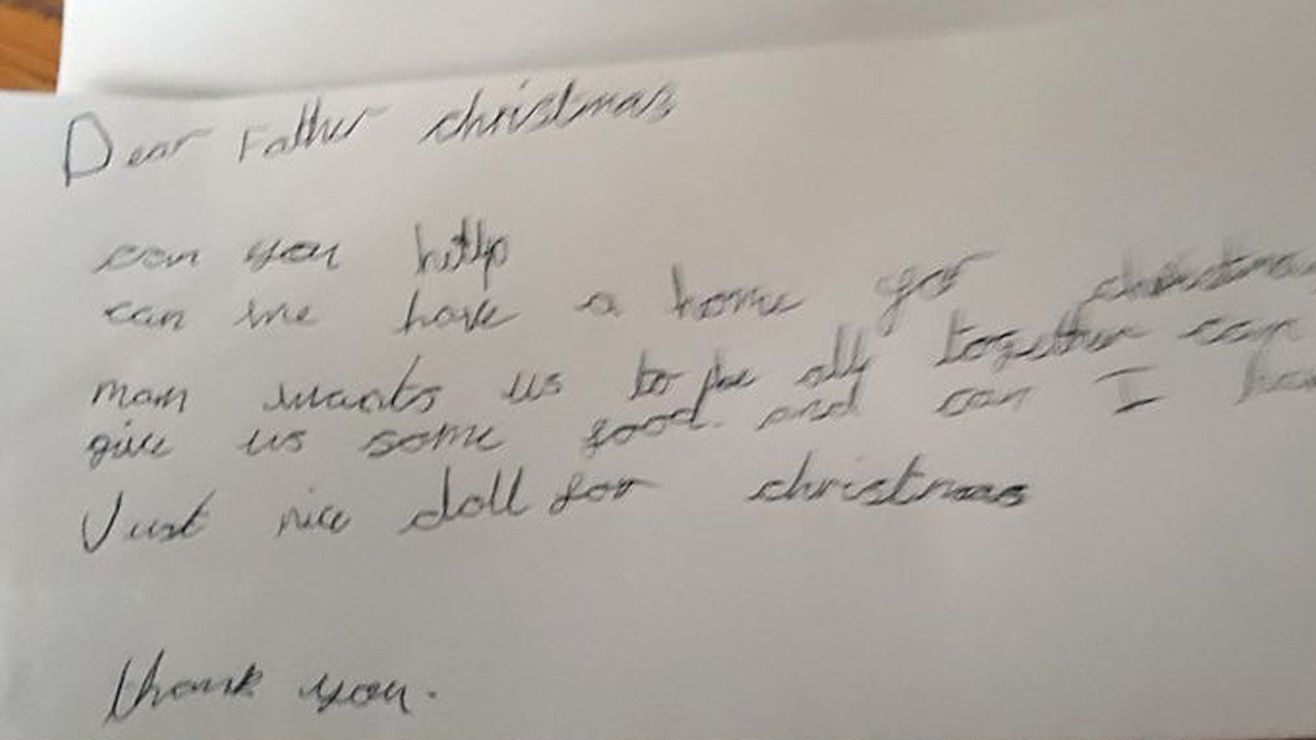 Dear Father christmas
can you help
can we have a home for christmas
mam wants us to be all together can
give us some food. and can I ha
Just nice doll for christmas
thank you.